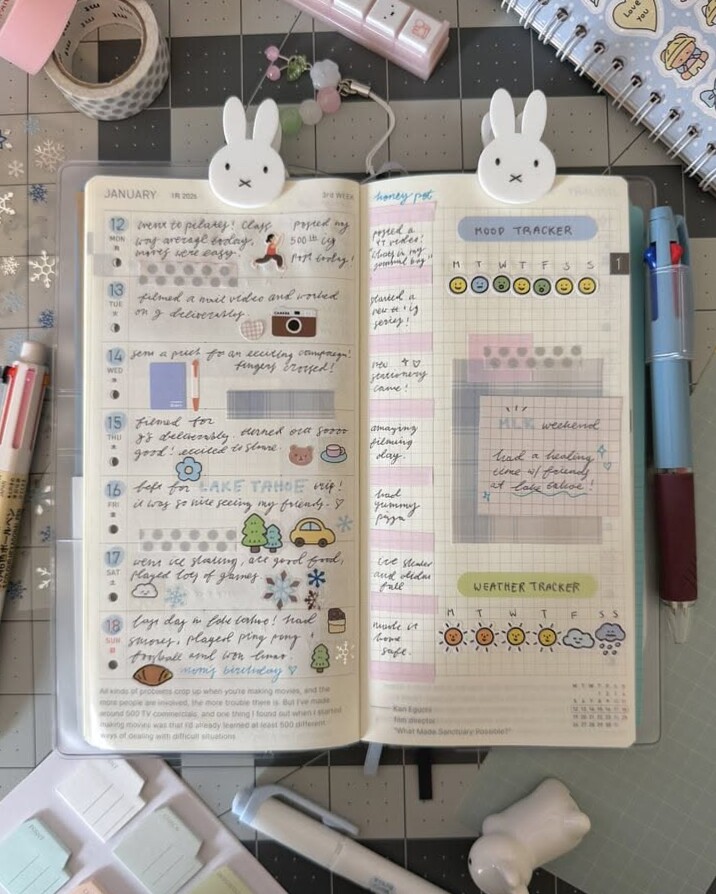 love
you
JANUARY 1月 2026 3RD WEEK
12
MON
went to pilates! class
was average today,
moves were easy.
posted my
500th ig
post today!
13
TUE
filmed a mail video and worked
on y deliberately.
CAMERA
14
WED
sent a pitch for an exciting campaign!
fingers crossed!
15
THU
filmed for
y's deliberately. turned out soooo
good! excited to share.
16
FRI
left for LAKE TAHOE trip!
it was so nice seeing my friends. ♡
17
SAT
went ice skating, ate good food,
played lots of games.
18
SUN
last day in lake tahoe! had
smores, played ping pong,
football and won
mom's birthday ♡
All kinds of problems crop up when you're making movies, and the
more people are involved, the more trouble there is. But I've made
around 500 TV commercials, and one thing I found out when I started
making movies was that I'd already learned at least 500 different
ways of dealing with difficult situations.
honey pot
posted a
yt video!
what's in my
journal bag
started a
new ig
series!
new
stationery
came!
amazing
filming
day.
had
yummy
pizza
ice skated
and didn't
fall
made it
home
safe.
MOOD TRACKER
M T W T F S S
1
MLK weekend
had a healing
time w/ friends
at lake tahoe!
WEATHER TRACKER
M T W T F S S
Kan Eguchi
film director
"What Made Sanctuary Possible?"